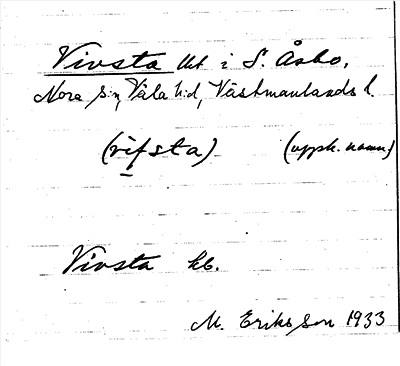 Vivsta lht i S. Åsbo,
Nora s:n, Våla h:d, Västmanlands l.
(vifsta) (uppk. namn)
Vivsta kb.
M. Eriksson 1933